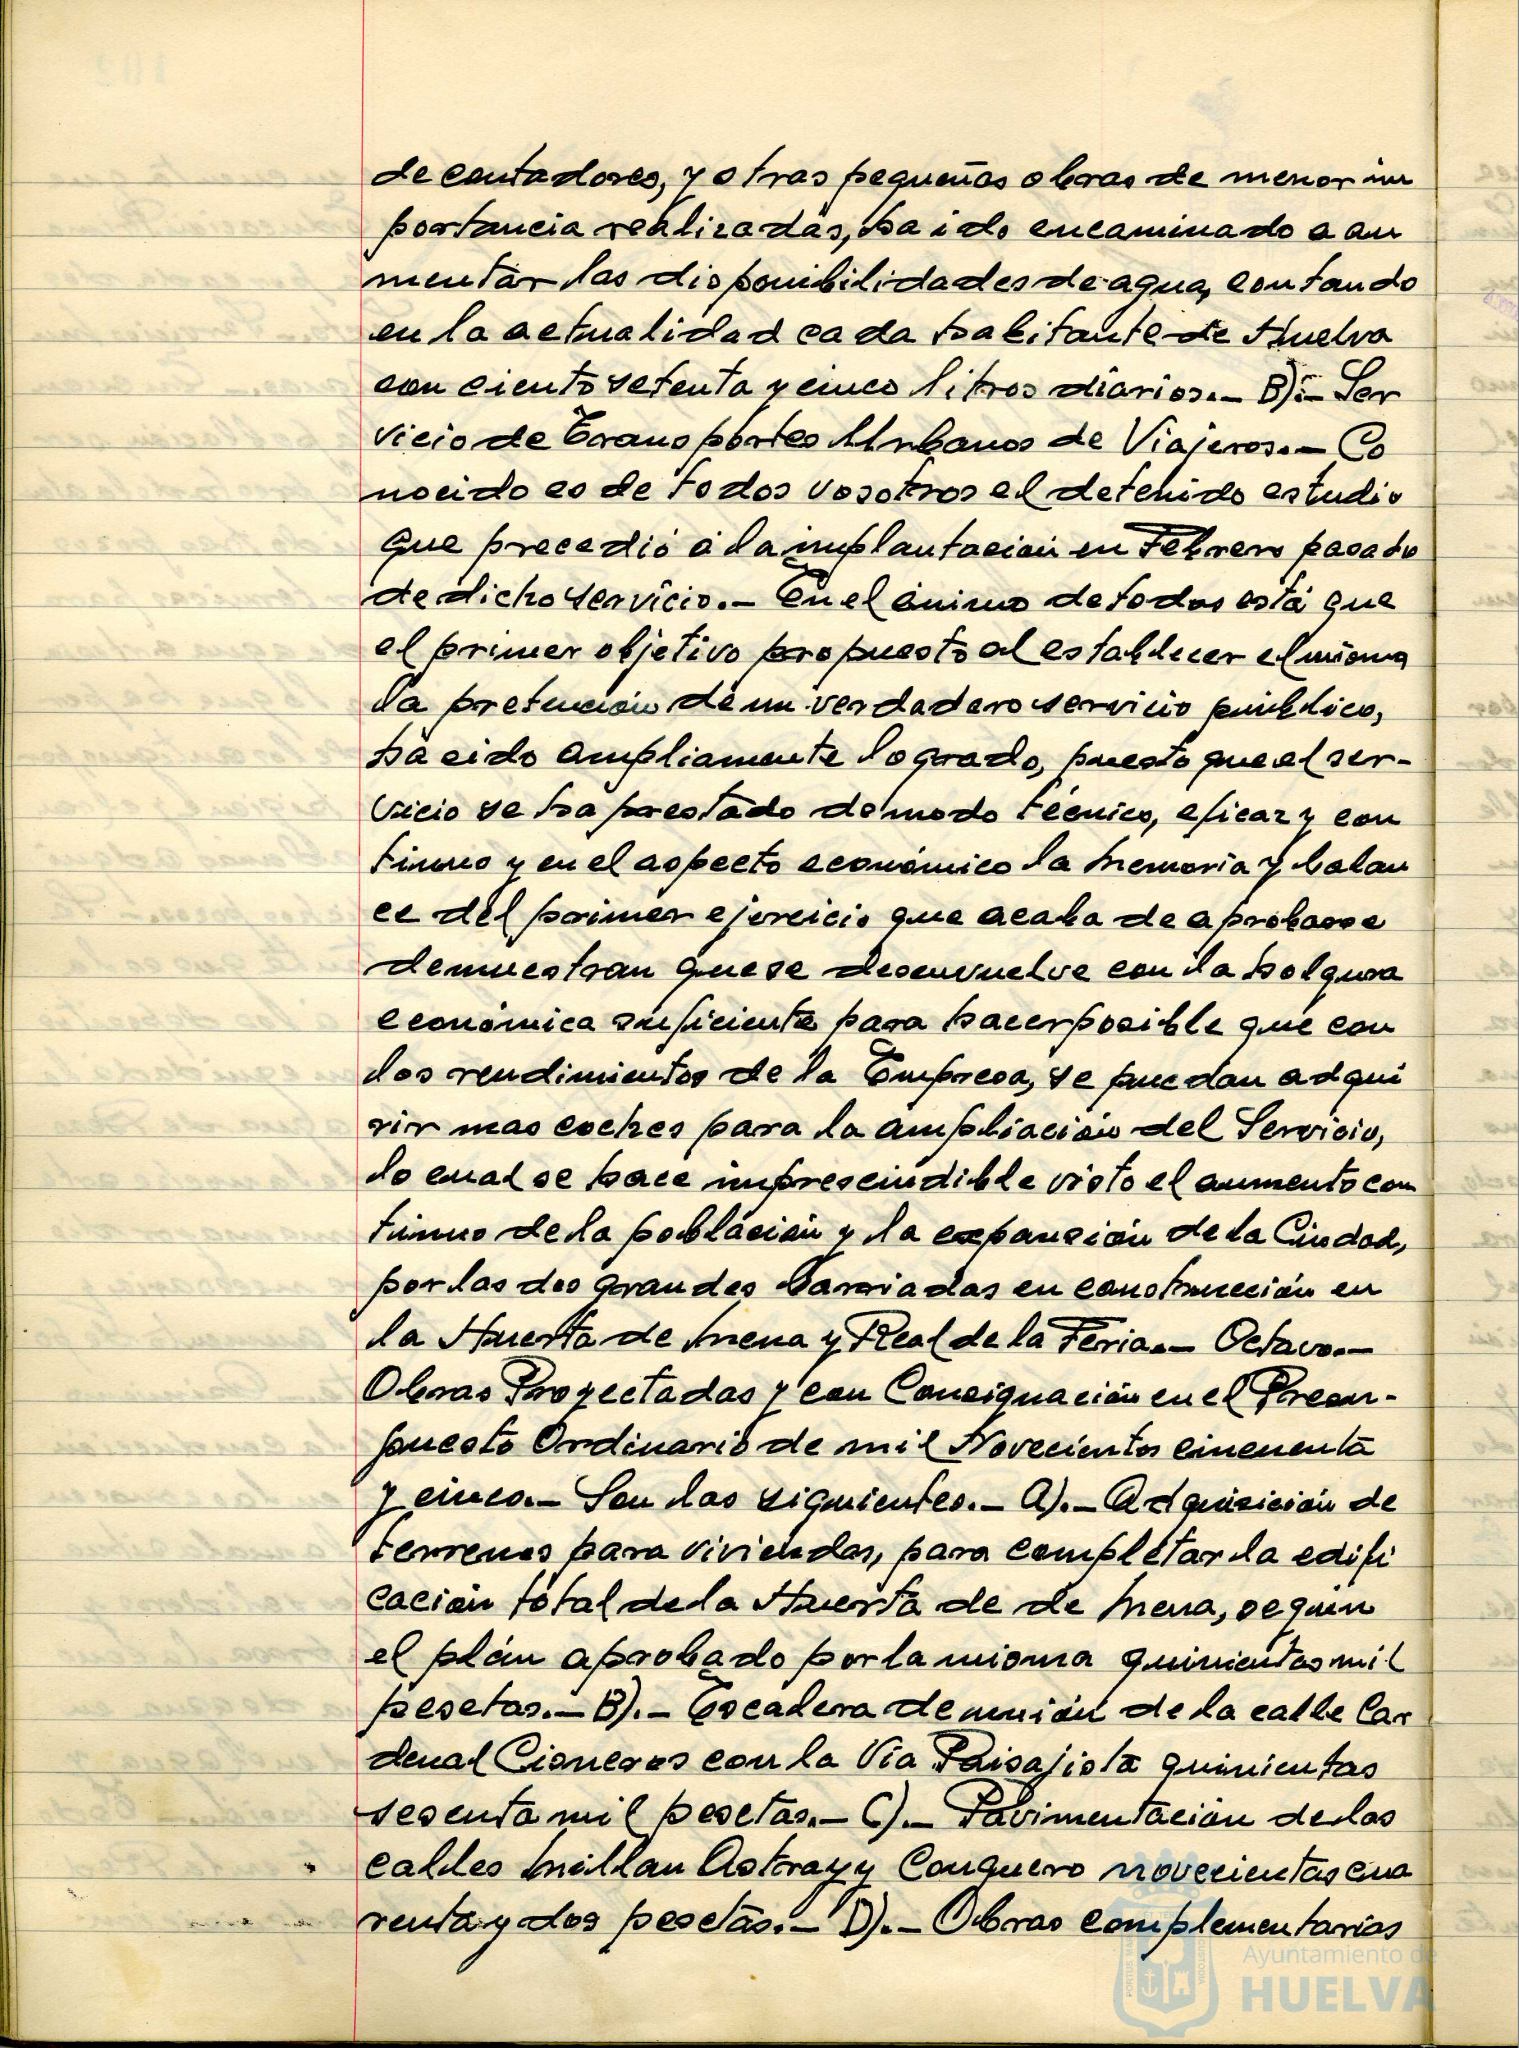 de contadores, y otras pequeñas obras de menor im
portancia realizadas, ha ido encaminado a au
mentar las disponibilidades de agua, contando
en la actualidad cada habitante de Huelva
con ciento setenta y cinco litros diarios.- B).- Ser
vicio de Transportes Urbanos de Viajeros.- Co
nocido es de todos vosotros el detenido estudio
que precedió a la implantación en Febrero pasado
de dicho servicio.- En el ánimo de todos está que
el primer objetivo propuesto al establecer el mismo
la pretensión de un verdadero servicio público,
ha sido ampliamente logrado, puesto que el ser-
vicio se ha prestado de modo técnico, eficaz y con
tinuo y en el aspecto económico la Memoria y balan
ce del primer ejercicio que acaba de aprobarse
demuestran que se desenvuelve con la holgura
económica suficiente para hacer posible que con
los rendimientos de la Empresa, se puedan adqui
rir mas coches para la ampliación del Servicio,
lo cual se hace imprescindible visto el aumento con
tinuo de la población y la expansión de la Ciudad,
por las dos grandes barriadas en construcción en
la Huerta de Mena y Real de la Feria.- Octavo.-
Obras Proyectadas y con Consignación en el Presu-
puesto Ordinario de mil Novecientos cincuenta
y cinco.- Son las siguientes.- A).- Adquisición de
terrenos para viviendas, para completar la edifi
cación total de la Huerta de de Mena, según
el plán aprobado por la misma quinientas mil
pesetas.- B).- Escalera de unión de la calle Car
denal Cisneros con la Vía Paisajista quinientas
sesenta mil pesetas.- C).- Pavimentación de las
calles Millan Astray y Conquero novecientas cua
renta y dos pesetas.- D).- Obras complementarias
Ayuntamiento de
HUELVA